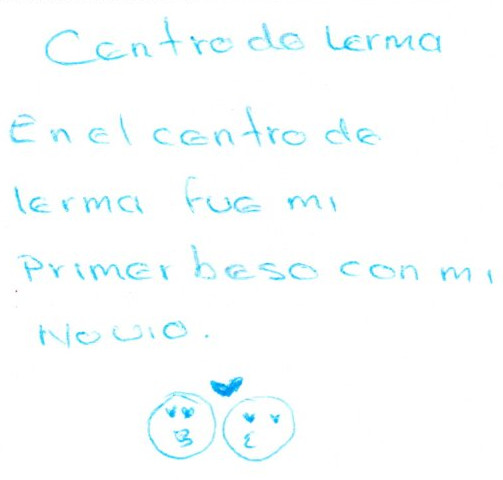 Centro de Lerma
En el centro de
lerma fue mi
Primer beso con mi
Novio.